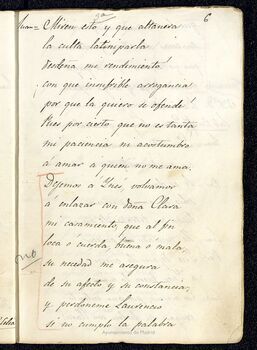 6
Juan= Miren esto y que altanera
la culta latiniparla
desdeña mi rendimiento!
¡con que insufrible arrogancia
por que la quiero se ofende!
Pues por cierto que no es tanta
mi paciencia ni acostumbro
á amar a quien no me ama.
Dejemos a Ynes, volvamos
a enlazar con doña Clara
mi casamiento, que al fin
loca ó cuerda, buena o mala,
no
su necedad me asegura
de su afecto y su constancia,
y perdoneme Laurencio
si no cumplo la palabra
Ayuntamiento de Madrid